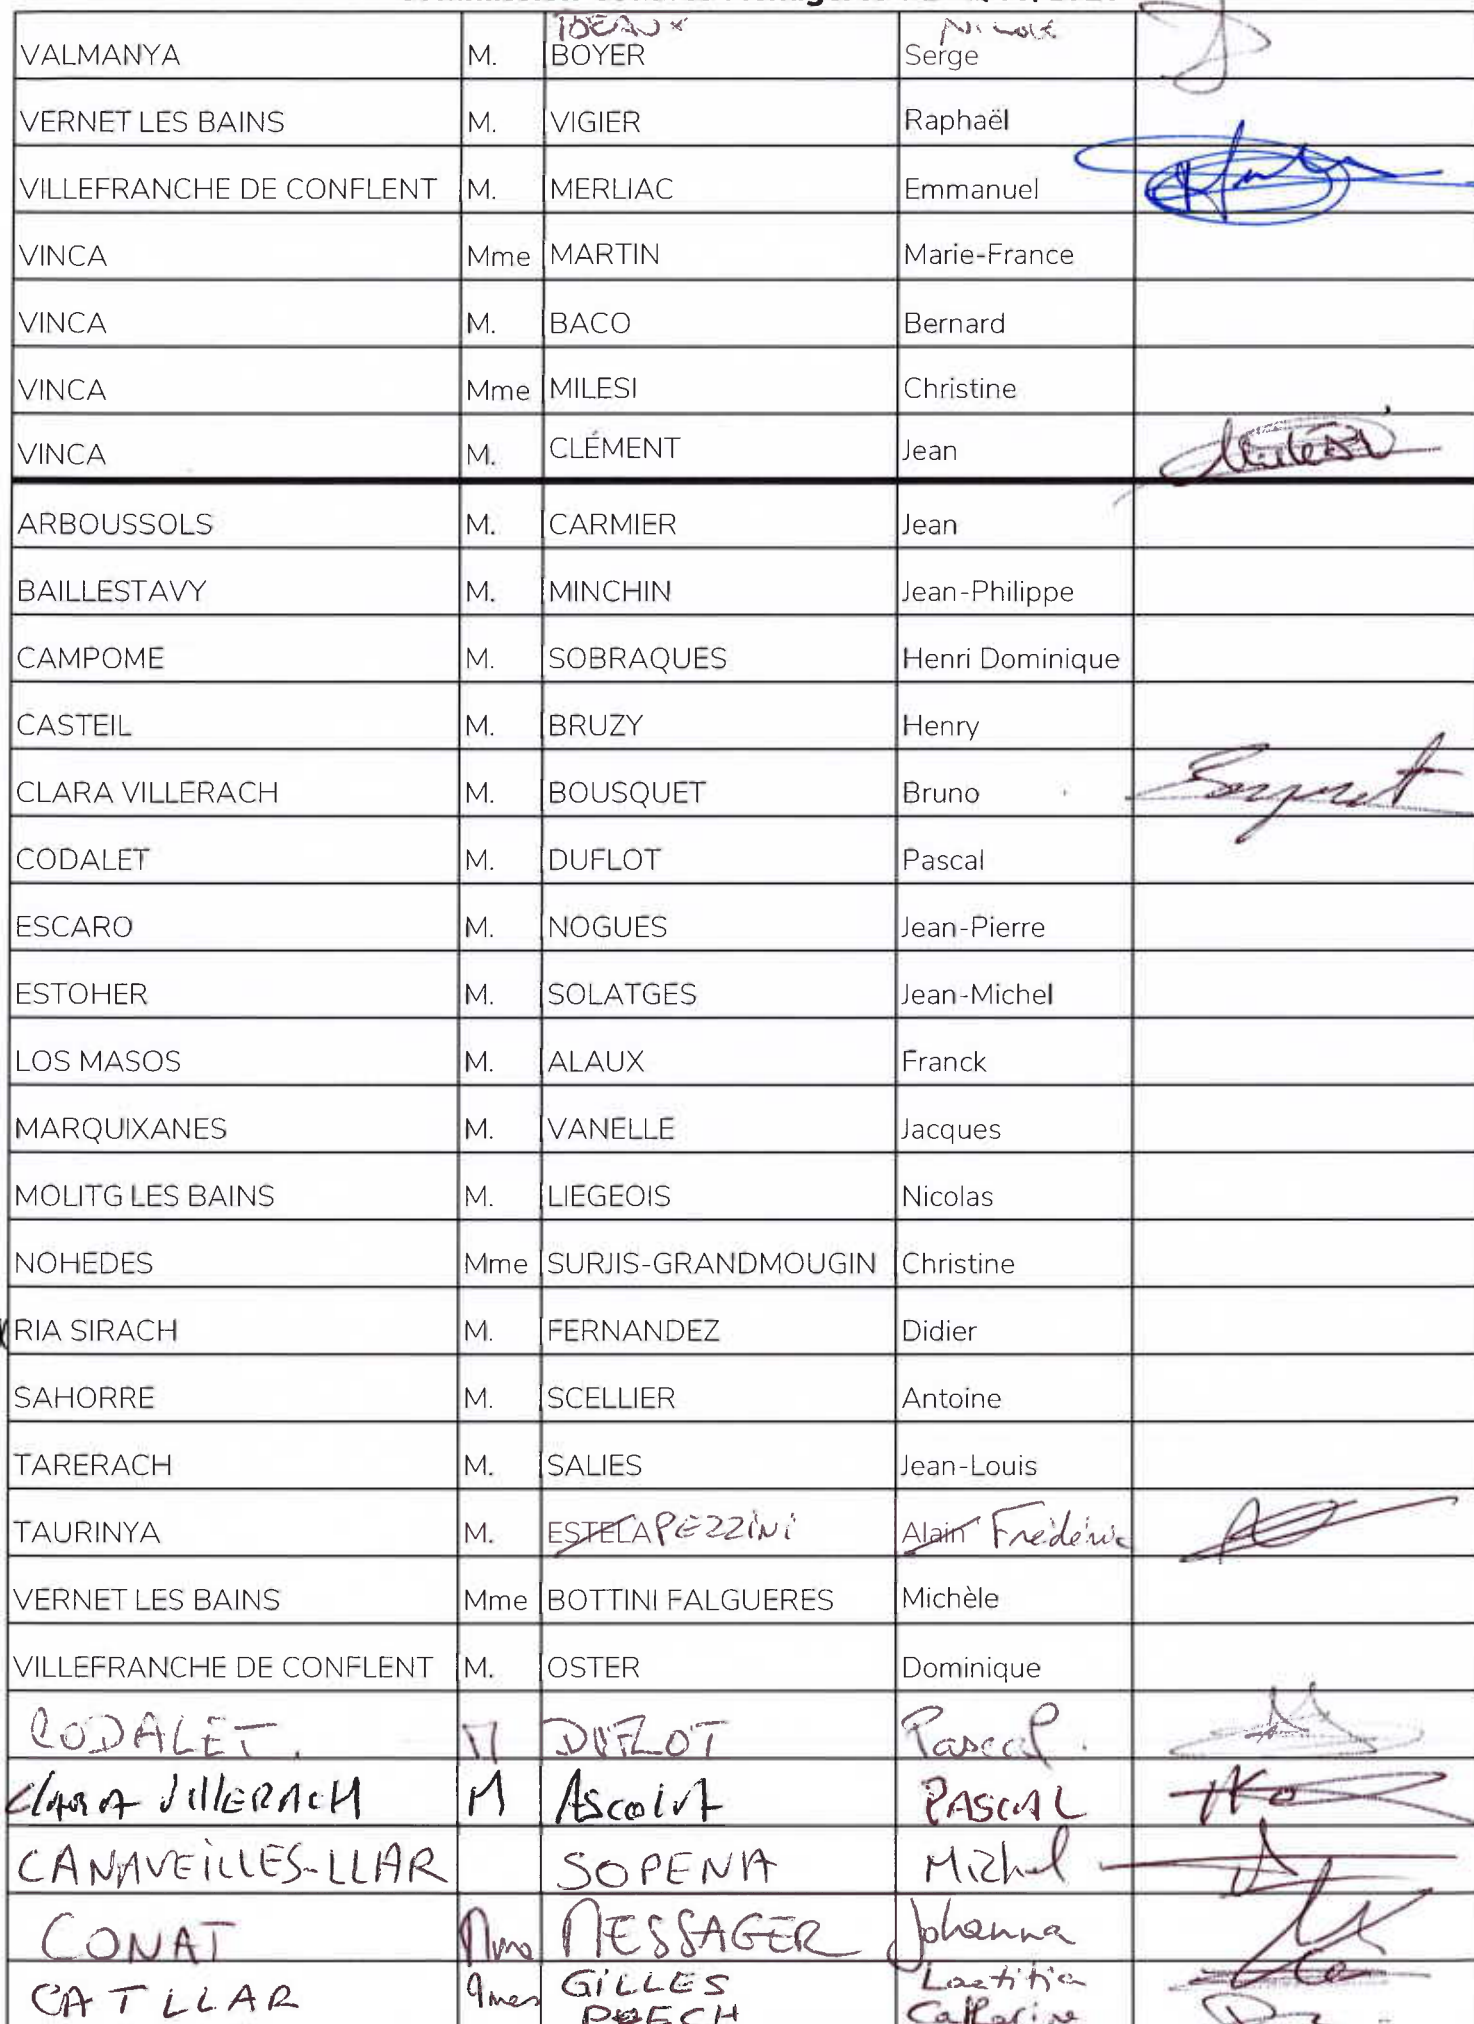 IDEAUX Nicole
VALMANYA M. BOYER Serge
VERNET LES BAINS M. VIGIER Raphaël
VILLEFRANCHE DE CONFLENT M. MERLIAC Emmanuel
VINCA Mme MARTIN Marie-France
VINCA M. BACO Bernard
VINCA Mme MILESI Christine
VINCA M. CLÉMENT Jean
ARBOUSSOLS M. CARMIER Jean
BAILLESTAVY M. MINCHIN Jean-Philippe
CAMPOME M. SOBRAQUES Henri Dominique
CASTEIL M. BRUZY Henry
CLARA VILLERACH M. BOUSQUET Bruno
CODALET M. DUFLOT Pascal
ESCARO M. NOGUES Jean-Pierre
ESTOHER M. SOLATGES Jean-Michel
LOS MASOS M. ALAUX Franck
MARQUIXANES M. VANELLE Jacques
MOLITG LES BAINS M. LIEGEOIS Nicolas
NOHEDES Mme SURJIS-GRANDMOUGIN Christine
RIA SIRACH M. FERNANDEZ Didier
SAHORRE M. SCELLIER Antoine
TARERACH M. SALIES Jean-Louis
TAURINYA M. ESTELA PEZZINI Alain Frédéric
VERNET LES BAINS Mme BOTTINI FALGUERES Michèle
VILLEFRANCHE DE CONFLENT M. OSTER Dominique
CODALET. M DUFLOT Pascal.
CLARA VILLERACH M ASCOLA PASCAL
CANAVEILLES-LLAR SOPENA Michel
CONAT Mme MESSAGER Johanna
CATLLAR Mmes GILLES Laetitia
PUECH Catherine